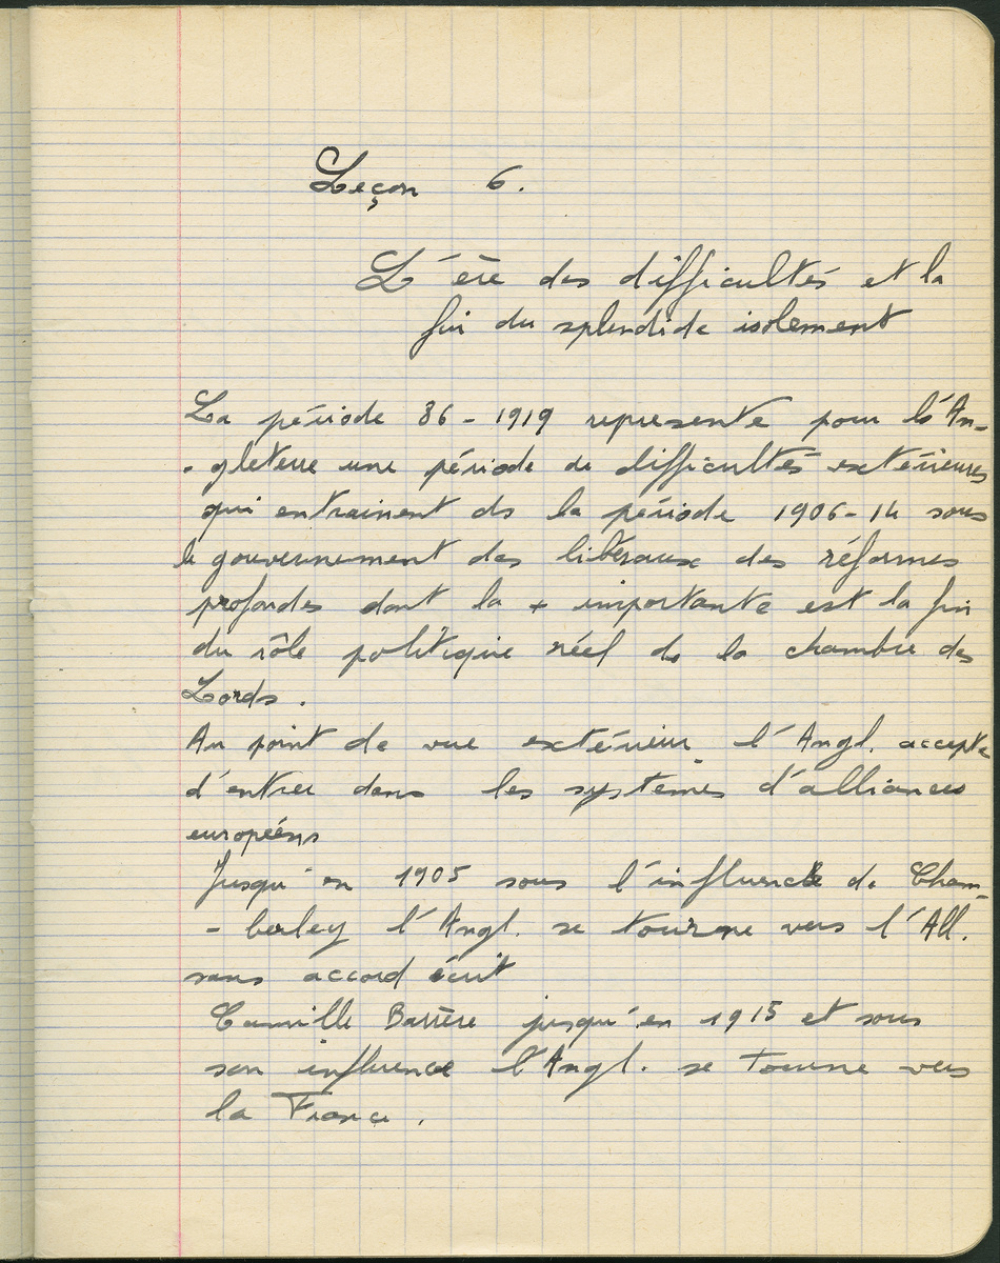 Leçon 6.
L'ère des difficultés et la
fin du splendide isolement
La période 86-1919 représente pour l'An-
-gleterre une période de difficultés extérieures
qui entrainent ds la période 1906-14 sous
le gouvernement des libéraux des réformes
profondes dont la + importante est la fin
du rôle politique réel de la chambre des
Lords.
Au point de vue extérieur l'Angl. accepte
d'entrer dans les systemes d'alliances
européens
Jusqu'en 1905 sous l'influence de Cham-
-berley l'Angl. se tourne vers l'All.
sans accord écrit
Camille Barrère jusqu'en 1915 et sous
son influence l'Angl. se tourne vers
la France.